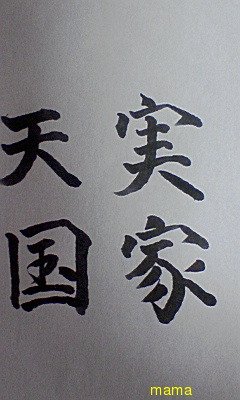 実家
天国
mama